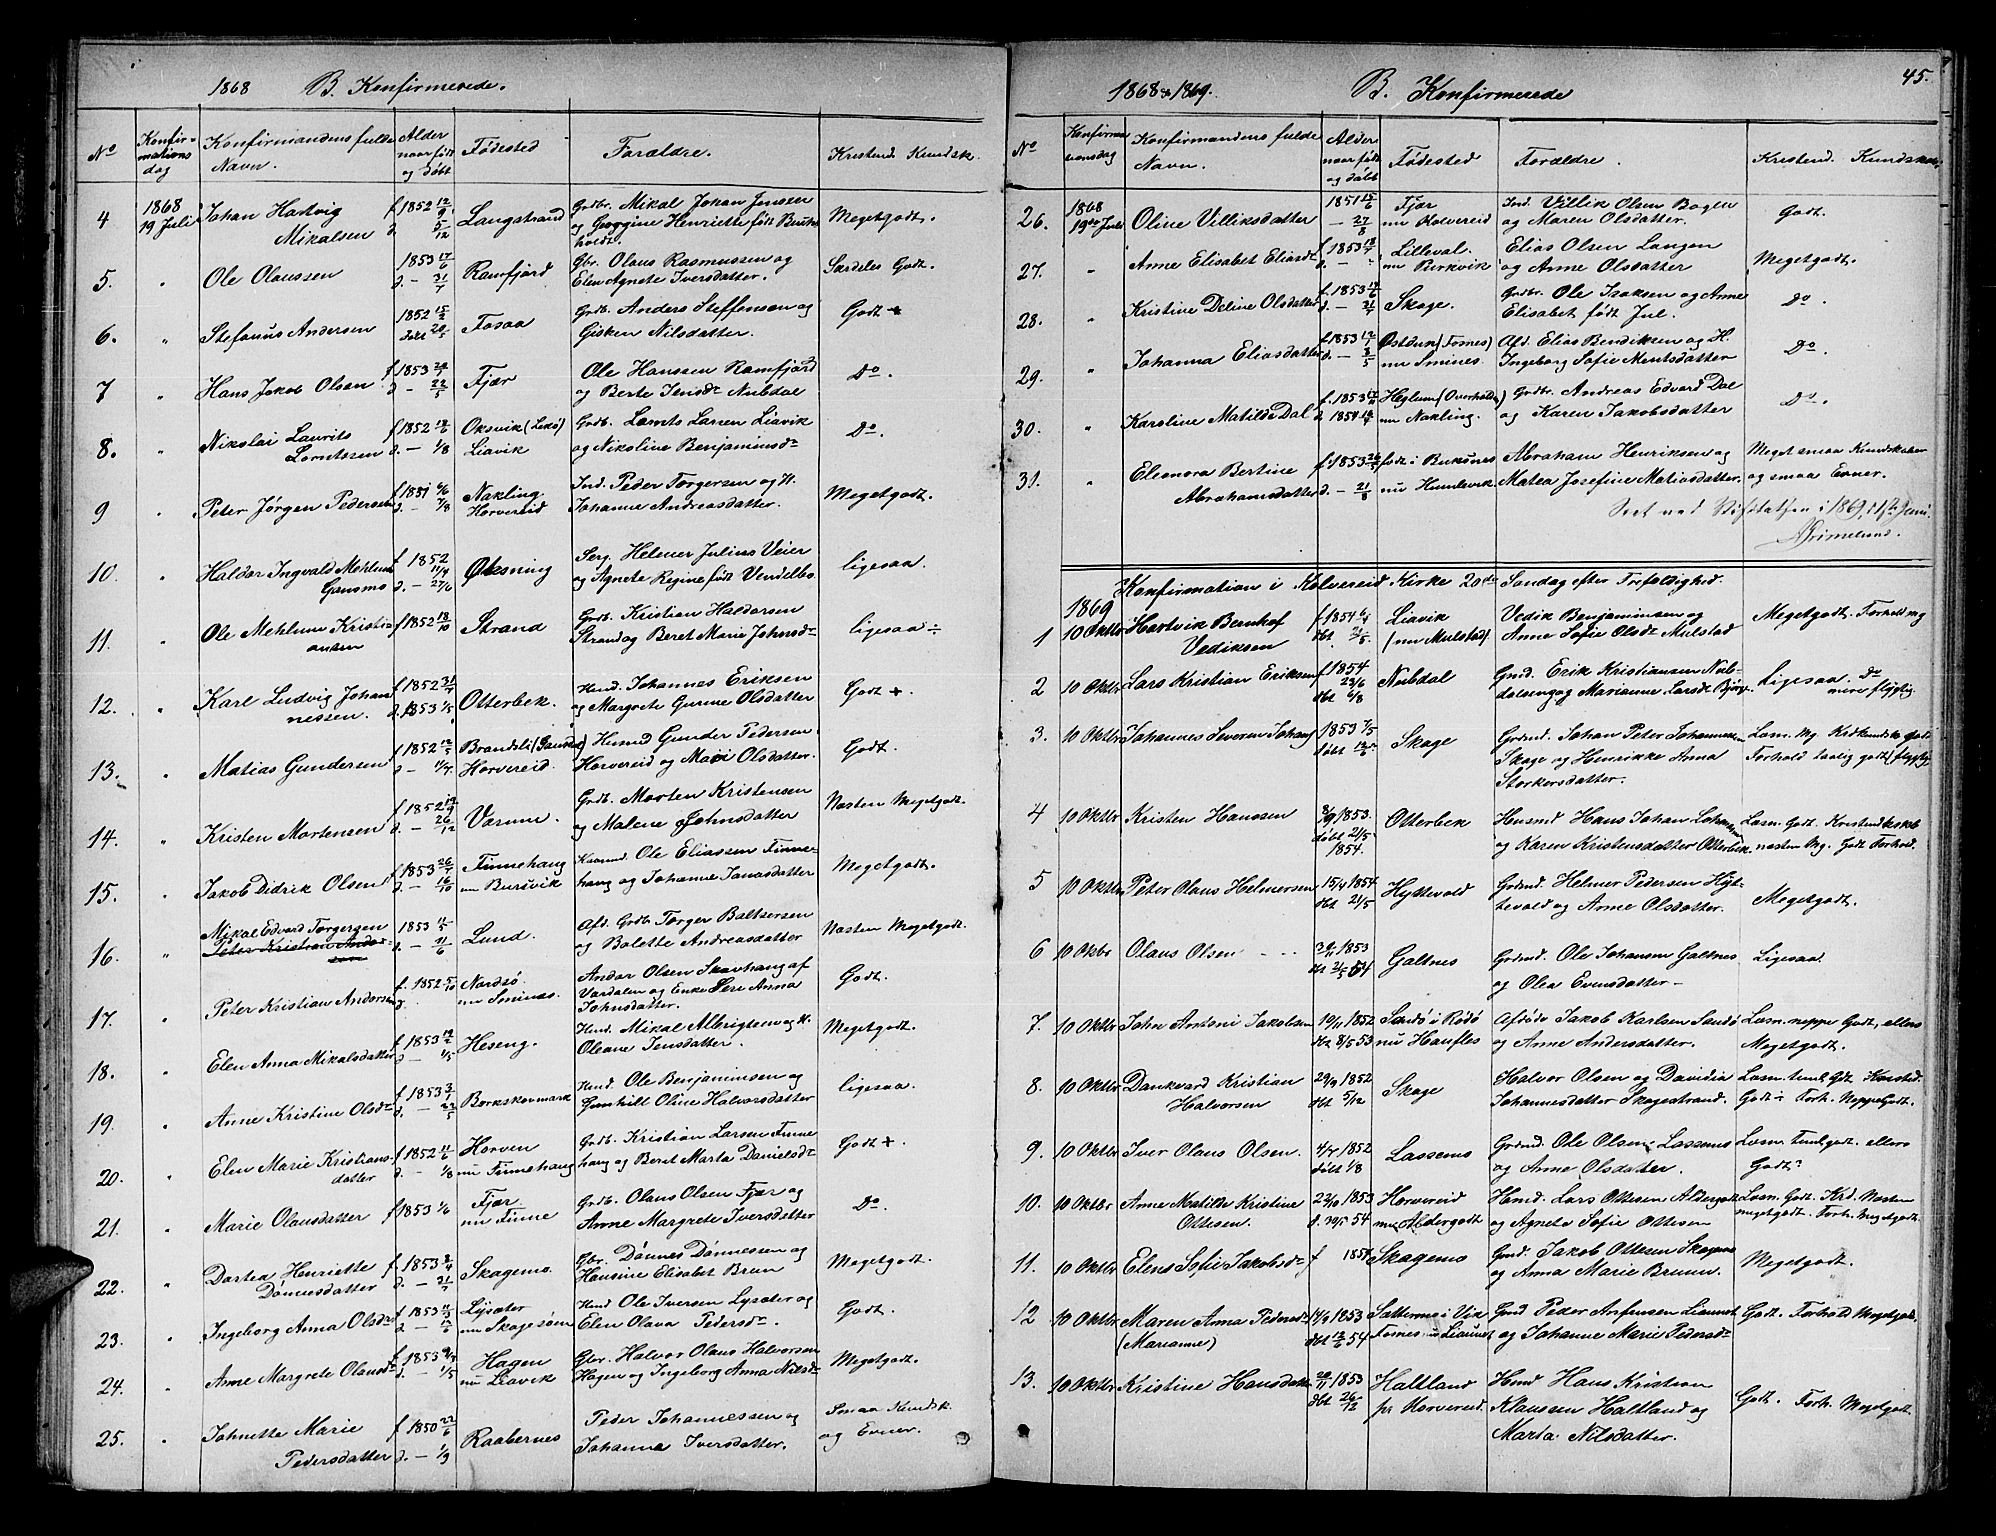 1868 B. Konfirmerede.
No Konfirmations dag Konfirmandens fulde Navn. Alder naar født og døbt Fødested Forældre. Kristend. Kundsk.
4 1868 19 Juli Johan Hartvig Mikalsen f 1852 12/9 d. 5/12 Langstrand Grdbr. Mikal Johan Jensen og Georgine Henriette født Megetgodt.
5. " Ole Olaussen 1853 17/6 d. — 31/7 Ramfjord Gbr. Olaus Rasmussen og Elen Agnete Iversdatter. Særdeles Godt.
6. " Stefanus Andersen 1852 15/2 døbt 20/5 Fosaa Grdb. Anders Steffensen og Gisken Nilsdatter. Godt +
7 " Hans Jakob Olsen f 1853 d — 22/5 Fjær Ole Hanssen Ramfjord og Berte Jensdr Nubdal Do.
8. " Nikolai Laurits Lorntssen f 1852 d. — 1/8 Oksvik (Lekø) Liavik Grdb. Lornts Larsen Liavik og Nikoline Benjaminsdr Do.
9 " Peter Jørgen Pedersen f 1851 6/6 d. — 7/8 Nakling Horvereid Ind. Peder Torgersen og H. Johanna Andreasdatter. Megetgodt.
10. " Haldor Ingvald Mehlum Gansmo f 1852 11/4 d — 27/6 Øksning Serg. Helmer Julius Veier og Agnete Regine født Vendelbo ligesaa
11. " Ole Mehlum Kristiansen f 1852 18/10 Strand Grdb. Kristian Haldorsen Strand og Beret Marie Johnsdr ligesaa ÷
12. " Karl Ludvig Johannessen. f 1852 31/7 d. 1853 1/5 Otterbek. Husd. Johannes Eriksen og Margrete Gurine Olsdatter Godt +.
13. " Matias Gundersen f 1852 12/5 d — 11/7 Brandsli Horvereid. Husmd Gunder Pedersen Horvereid og Mari Olsdatter. Godt.
14. " Kristen Mortensen f 1852 d. — 26/12 Varum. Grdb. Morten Kristensen og Malene Johnsdatter Næsten Megetgodt.
15. " Jakob Didrik Olsen f 1853 26/7 d — 16/10 Finnehang nu Bursvik Ole Eliassen Finnehang og Johanne Jonasdatter Megetgodt.
16. " Mikal Edvard Torgersen Peter Kristian Andorsen 1853 11/5 d. — 21/6 Lund. Afd. Grdb. Torger Baltsersen og Bolette Andreasdatter Næsten Megetgodt.
17. " Peter Kristian Andorsen f. 1852 5/10 d. Nordsø. nu Sminæs. Andor Olsen Skavhang af Værdalen og Enke Sere Anna Johnsdatter. Godt.
18. " Elen Anna Mikalsdatter f 1853 d — 1/5 Heseng. Husd. Mikal Albrigtsen og H. Oleane Jensdatter. Megetgodt.
19. " Anne Kristine Olsdr f 1853 3/1 d. — 22/5 Borkskovmark Husd. Ole Benjaminsen og Gunhild Oline Halvorsdatter ligesaa.
20. " Elen Marie Kristiansdatter f 1852 11/6 d. — 1/8 Horven nu Finnehang Grdb. Kristian Larsen Finnehang og Beret Marta Danielsdr Godt +.
21. " Marie Olausdatter f 1853 1/6 Fjær nu Finne Grdb. Olaus Olsen Fjær og Anne Margrete Iversdatter Do.
22. " Dortea Henriette Dønnesdatter f. 1853 2/4 d. — 31/7 Skagemo Gbr. Dønnes Dønnessen og Hansine Elisabet Brun Megetgodt.
23. " Ingeborg Anna Olsdr f 1853 11/3 d. — 12/6 Lysæter nu Skagesøm Husd Ole Iversen Lysæter og Elen Olava Pedersdr. Godt.
24. " Anne Margrete Olausdr f 1853 d. — 1/5 Hagen nu Liavik Gbr. Halvor Olaus Halvorsen Hagen og Ingeborg Anna Nilsdr Megetgodt.
25. " Johnette Marie Pedersdatter f 1850 22/6 d. — 1/9 Raabernes Peder Johannessen og Johanna Iversdatter. Smaa Kundsk. og Evner.
1868 & 1869. B. Konfirmerede 45.
No Konfirmationsdag Konfirmandens fulde Navn. Alder naar født og døbt Fødested Forældre. Kristend. Kundskab
26. 1868 19de Juli Oline Villiksdatter 1851 15/6 — 27/8 Fjær nu Kolvereid Ind. Villik Olsen Bogen og Maren Olsdatter. Godt.
27. " Anne Elisabet Eliasdr f. 1853 d. — Lilleval. nu Birkvik Elias Olsen Langen og Anne Olsdatter Megetgodt.
28. " Kristine Deline Olsdatter f. 1853 d. — 21/7 Skage. Grdbr. Ole Isaksen og Anne Elisabet født Jul. Do.
29. " Johanna Eliasdatter f 1853 12/1 d. — 8/5 Østdun (Fornes) nu Sminæs. Afd. Elias Bendiksen og H. Ingeborg Sofie Mentsdatter Do.
30. " Karoline Matilde Dal f. 1853 d 1854 Heglum (Overhalden) nu Nakling. Grdbr. Andreas Edvard Dal og Karen Jakobsdatter Do.
31. " Eleonora Bertine Abrahamsdatter f. 1853 d. — 21/8 født i Buksnes nu Humlevik Abraham Henriksen og Matea Josefine Matiasdatter. Meget smaa Kundskaber og smaa Evner.
Seet ved Visitatsen i 1869, d. 1ste Juni.
Grimelund.
Konfirmation i Kolvereid Kirke 20de Søndag efter Trefoldighed.
1 1869 10 Oktbr Hartvik Bernhof Vediksen f. 1854 6/4 dbt. 21/5 Liavik (nu Mulstad) Vedik Benjaminsen og Anne Sofie Olsdr Mulstad Megetgodt. Forhold mg
2 10 Oktbr Lars Kristian Eriksen f 1854 23/6 dbt 6/8 Nubdal Gmd. Erik Kristiansen Nubdalseng og Marianne Larsdr Ligesaa. Do mere flygtig.
3. 10 Oktbr Johannes Severin Johans 1853 7/5 døbt Skage Grdmd. Johan Peter Johannessen Skage og Henrikke Anna Storkersdatter. Læsn. Mg. Kristendk. godt Forhold taalig godt (flygtig)
4 10 Oktbr Kristen Hanssen 8/9 1853. døbt 21/5 1854. Otterbek Husmd Hans Johan Johansen og Karen Kristensdatter Otterbek. Læsn. Godt. Kristendkskb næsten Mg. Godt Forhold.
5 10 Oktbr Peter Olaus Helmersen 15/4 1854 dbt 21/5 Hyttevold Grdmd. Helmer Pedersen Hyttevold og Anne Olsdatter. Megetgodt.
6 10 Okbr Olaus Olsen 1853 dbt 21/5 54 Galtnes Grdmd. Ole Johansen Galtnes og Olea Evensdatter — Ligesaa.
7. 10 Oktbr John Antoni Jakobsen 19/11 1852 dbt 8/5 53 Sandø i Rødø nu Haufles Afdøde Jakob Karlsen Sandø og Anne Andersdatter. Læsn. neppe Godt, ellers Megetgodt.
8. 10 Oktbr Dankvard Kristian Halvorsen 29/9 1852 dbt 5/12 Skage Halvor Olsen og Davidia Johannesdatter Skagestrand. Læsn. temml. Gdt Kristd. Godt ÷ Forh. Neppe Godt.
9. 10 Oktbr Iver Olaus Olsen 4/7 1852 døbt 1/8 Lassemo Grdmd. Ole Olsen Lassemo og Anne Olsdatter. Læsn. temlgodt. ellers Godt?
10. 10 Oktbr Anne Matilde Kristine Ottesen. 22/10 1853 d. 54 Horvereid nu Aldergodt Husmd. Lars Ottesen Aldergodt og Agnete Sofie Ottesen Læsn. Godt. Krd. Næsten megetgodt. Forh. Megetgodt.
11. 10 Oktbr Elens Sofie Jakobsdr f 1854 Skagemo Gmd. Jakob Ottesen Skagemo og Anna Marie Brunn. Megetgodt.
12 10 Oktbr Maren Anna Pedersdr (Marianne) 14/9 1853 dbt 12/6 54 Sætternes i Vik Fornes nu Liaunet Gmd Peder Arfinsen Liaunet og Johanne Marie Pedersdr Godt. Forhold Megetgodt.
13. 10 Oktbr Kristine Hansdatter 20/11 1853 dbt 26/12 Haltland pr Horvereid. Husmd Hans Kristian Klaussen Haltland og Marta Nilsdatter. Godt. Forh. Megetgodt.